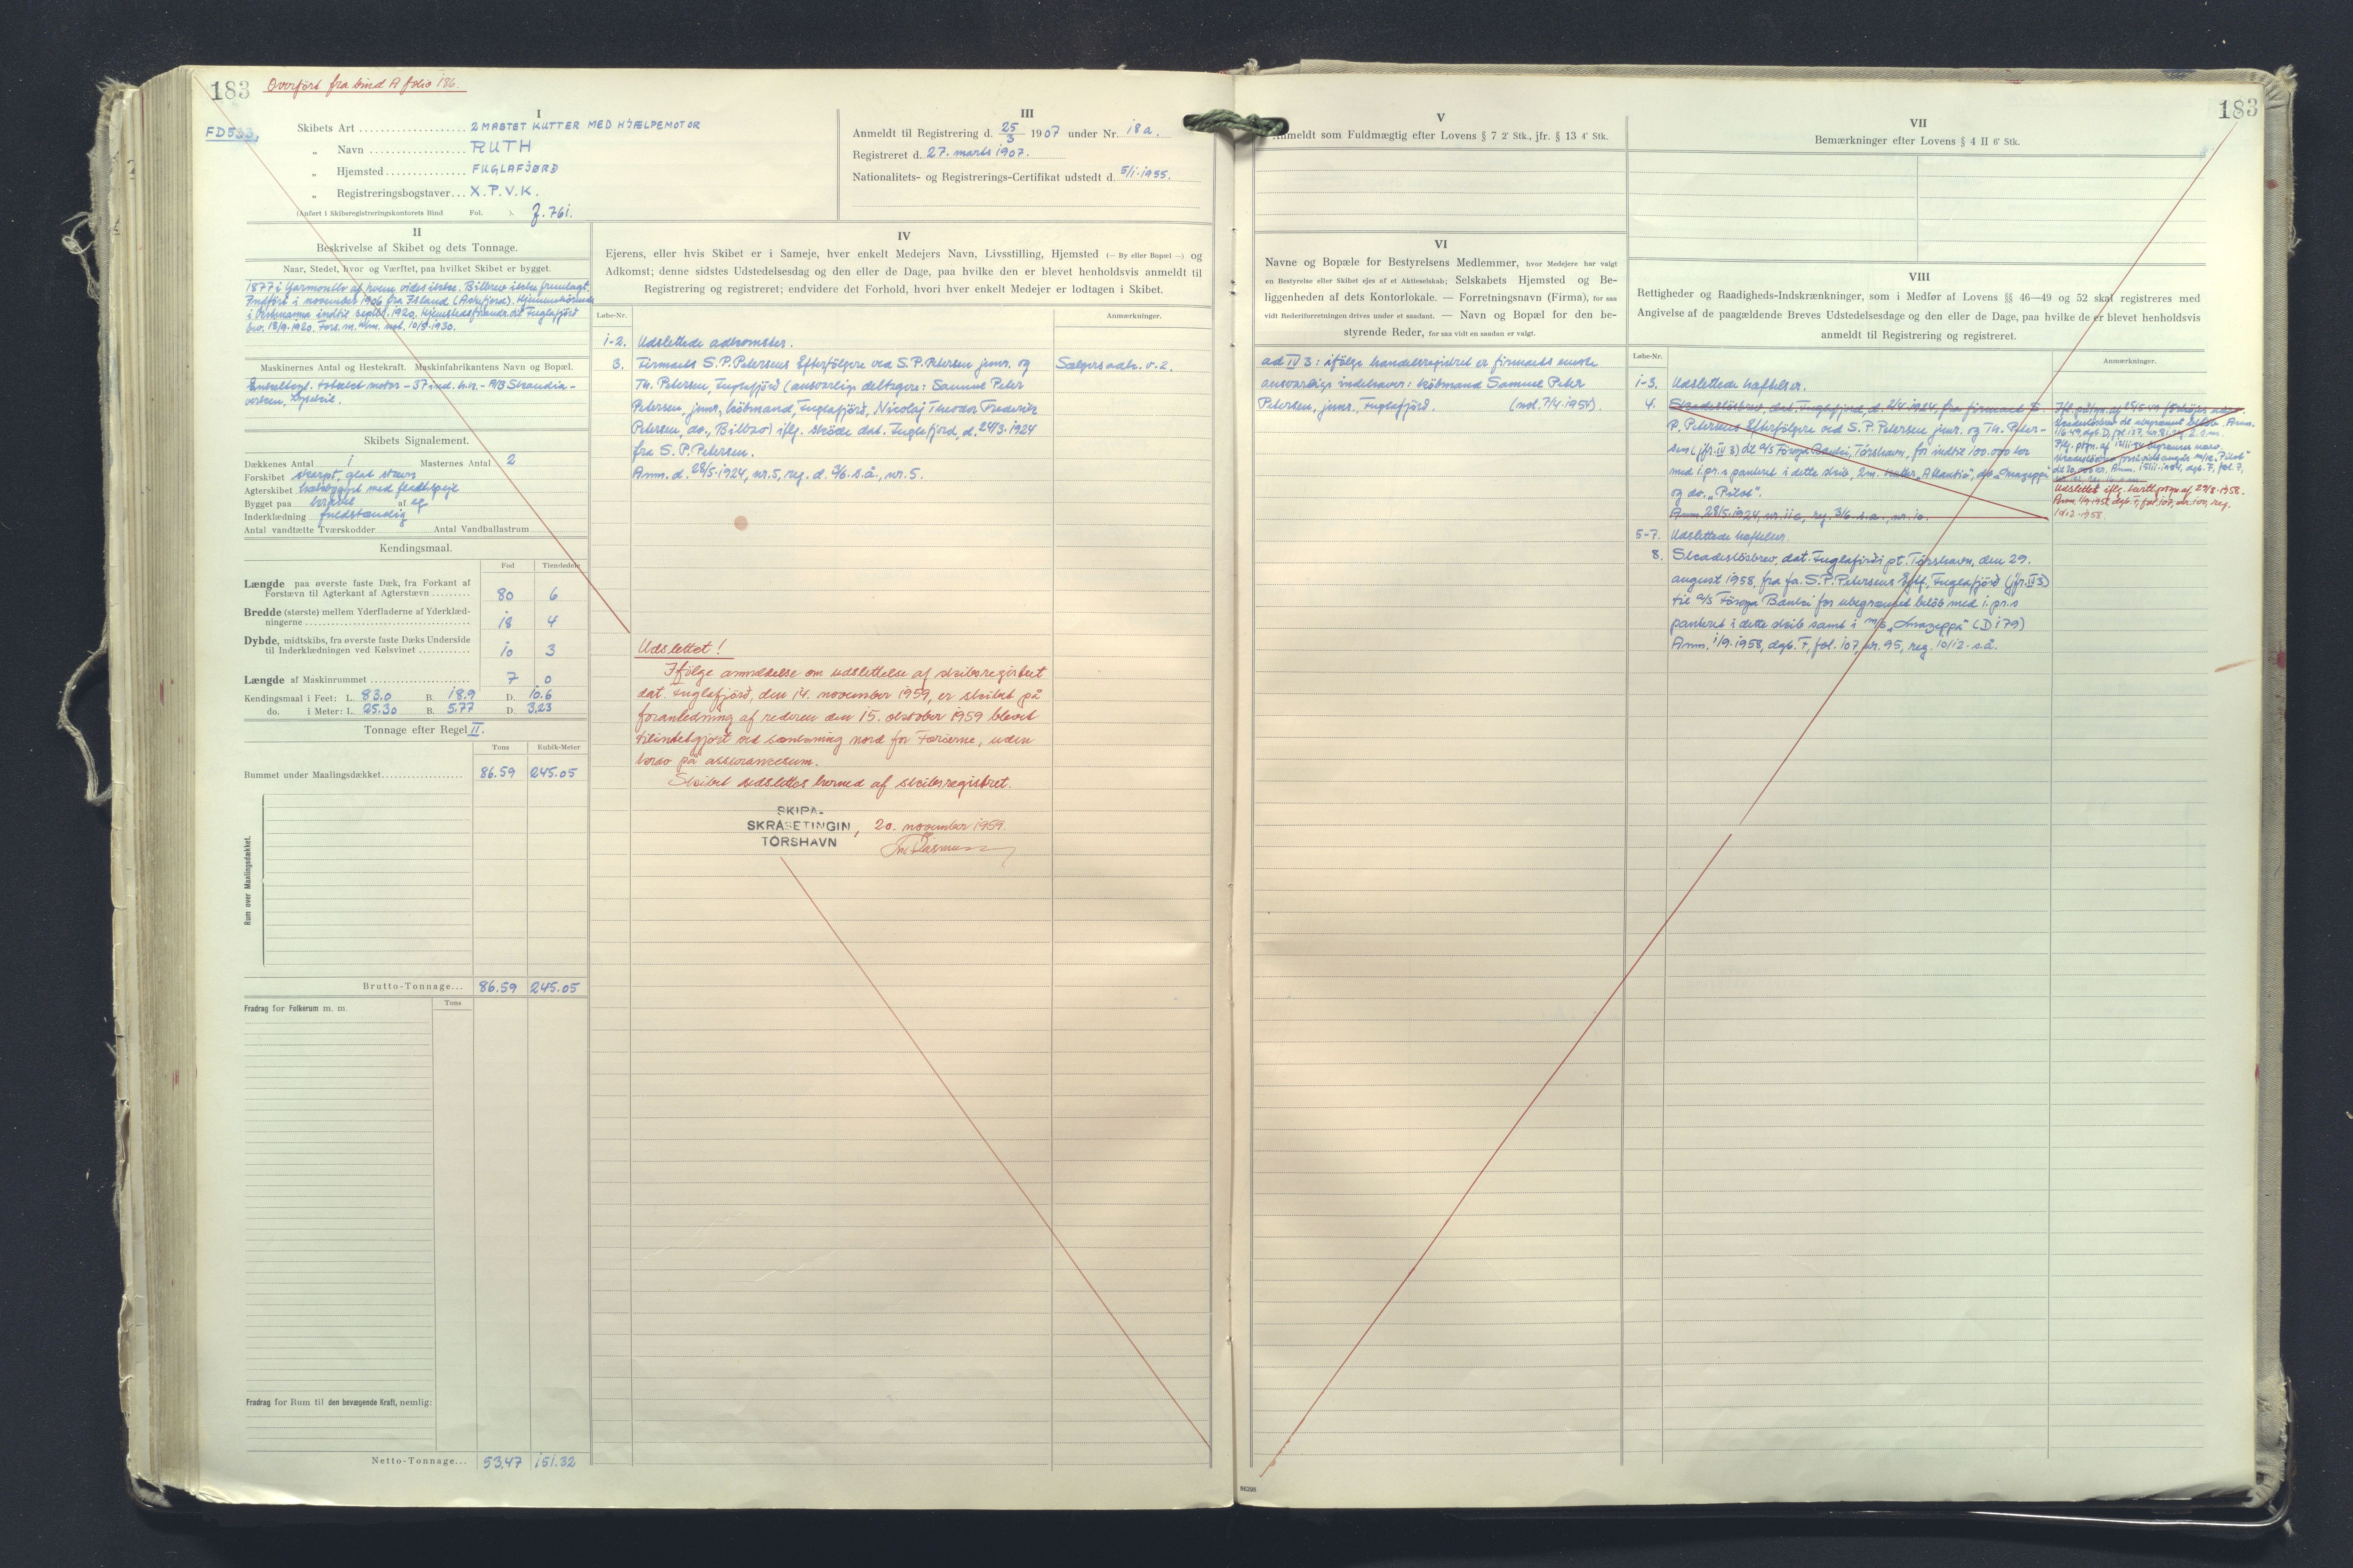 183
Overført fra bind A folio 186.
FD533,
I
Skibets Art 2 MASTET KUTTER MED HJÆLPEMOTOR
„ Navn RUTH
„ Hjemsted FUGLAFJØRÐ
„ Registreringsbogstaver X.P.V.K.
(Anført i Skibsregistreringskontorets Bind Fol. ). J. 761.
III
Anmeldt til Registrering d. 25/3 1907 under Nr. 18a.
Registreret d. 27. marts 1907.
Nationalitets- og Registrerings-Certifikat udstedt d. 5/1.1955.
II
Beskrivelse af Skibet og dets Tonnage.
Naar, Stedet, hvor og Værftet, paa hvilket Skibet er bygget.
1877 i Yarmouth af hvem vides ikke. Bilbrev ikke fremlagt.
Indført i november 1906 fra Island
i Vestmanna indtil septbr. 1920. Hjemstedsforandr. til Fuglefjord
Maskinernes Antal og Hestekraft. Maskinfabrikantens Navn og Bopæl.
Enkeltvirk. totaktet motor – 57 ind. h.k. – A/B Skandia-
verken, Lysekil.
Skibets Signalement.
Dækkenes Antal 1 Masternes Antal 2
Forskibet skarpt, glat stævn
Agterskibet halvrundt med fladt spejl
Bygget paa kravel af eg
Inderklædning fuldstændig
Antal vandtætte Tværskodder Antal Vandballastrum
Kendingsmaal.
Fod Tiendedele
Længde paa øverste faste Dæk, fra Forkant af
Forstævn til Agterkant af Agterstævn 80 6
Bredde (største) mellem Yderfladerne af Yderklæd-
ningerne 18 4
Dybde, midtskibs, fra øverste faste Dæks Underside
til Inderklædningen ved Kølsvinet 10 3
Længde af Maskinrummet 7 0
Kendingsmaal i Feet: L. 83.0 B. 18.9 D. 10.6
do. i Meter: L. 25.30 B. 5.77 D. 3.23
Tonnage efter Regel II.
Tons Kubik-Meter
Rummet under Maalingsdækket 86.59 245.05
Rum over Maalingsdækket.
Brutto-Tonnage... 86.59 245.05
Fradrag for Folkerum m. m. Tons
Fradrag for Rum til den bevægende Kraft, nemlig:
Netto-Tonnage... 53.47 151.32
IV
Ejerens, eller hvis Skibet er i Sameje, hver enkelt Medejers Navn, Livsstilling, Hjemsted (— By eller Bopæl —) og
Adkomst; denne sidstes Udstedelsesdag og den eller de Dage, paa hvilke den er blevet henholdsvis anmeldt til
Registrering og registreret; endvidere det Forhold, hvori hver enkelt Medejer er lodtagen i Skibet.
Løbe-Nr. Anmærkninger.
1-2. Udslettede adkomster.
3. Firmaet S.P. Petersens Efterfølgere ved S.P. Petersen junr. og Sælgers adk. v. 2.
Th. Petersen, Fuglefjord (ansvarlige deltagere: Samuel Peter
Petersen, junr., købmand, Fuglefjord, Nicolaj Theodor Frederik
Petersen, do., Billzo) iflg. skøde dat. Fuglefjord, d. 24/3.1924
fra S. P. Petersen.
Anm. d. 28/5.1924, nr. 5, reg. d. 3/6. s.å., nr. 5.
Udslettet!
Ifølge anmeldelse om udslettelse af skibsregistret
dat. Fuglefjord, den 14. november 1959, er skibet på
foranledning af rederen den 15. oktober 1959 blevet
tilintetgjort ved sænkning nord for Færøerne, uden
krav på assurancesum.
Skibet udslettes hermed af skibsregistret.
SKIPA-
SKRÁSETINGIN, 20. november 1959.
TÓRSHAVN
183
V
Anmeldt som Fuldmægtig efter Lovens § 7 2' Stk., jfr. § 13 4' Stk.
VI
Navne og Bopæle for Bestyrelsens Medlemmer, hvor Medejere har valgt
en Bestyrelse eller Skibet ejes af et Aktieselskab; Selskabets Hjemsted og Be-
liggenheden af dets Kontorlokale. — Forretningsnavn (Firma), for saa
vidt Rederiforretningen drives under et saadant. — Navn og Bopæl for den be-
styrende Reder, for saa vidt en saadan er valgt.
ad IV 3: ifølge handelsregistret er firmaets eneste
ansvarlige indehaver: købmand Samuel Peter
Petersen, junr., Fuglefjord. (not. 7/4.1954).
VII
Bemærkninger efter Lovens § 4 II 6' Stk.
VIII
Rettigheder og Raadigheds-Indskrænkninger, som i Medfør af Lovens §§ 46—49 og 52 skal registreres med
Angivelse af de paagældende Breves Udstedelsesdage og den eller de Dage, paa hvilke de er blevet henholdsvis
anmeldt til Registrering og registreret.
Løbe-Nr. Anmærkninger.
1-3. Udslettede hæftelser.
4. Skadesløsbrev, dat. Fuglefjord, d. 2/4.1924, fra firmaet S.
P. Petersens Efterfølgere ved S. P. Petersen junr. og Th. Peter-
sen (jfr. IV 3) til A/S Föroya Banki, Tórshavn, for indtil 100.000 kr
med 1. pr. s panteret i dette skib, 2m. kutter „Atlantic", do „Smazeppa"
og do. „Pilot".
Anm. 28/5.1924, nr. 11c, reg. 3/6. s.a., nr. 10.
Udslettet iflg. kvitt. påtgn. af 29/8.1958.
Anm. 1/9.1958, dgb. F, fol. 107, nr. 100, reg.
10.12.1958.
5-7. Udslettede hæftelser.
8. Skadesløsbrev, dat. Fuglafirdi pt. Tórshavn, den 29.
august 1958, fra fa. S. P. Petersens Eftf., Fuglafjörð (jfr. IV 3)
til A/S Föroya Banki for ubegrænset beløb med 1. pr. s
panteret i dette skib samt i m/s „Smazeppa" (D 179)
Anm. 1/9.1958, dgb. F, fol. 107, nr. 95, reg. 10/12. s.å.
86298